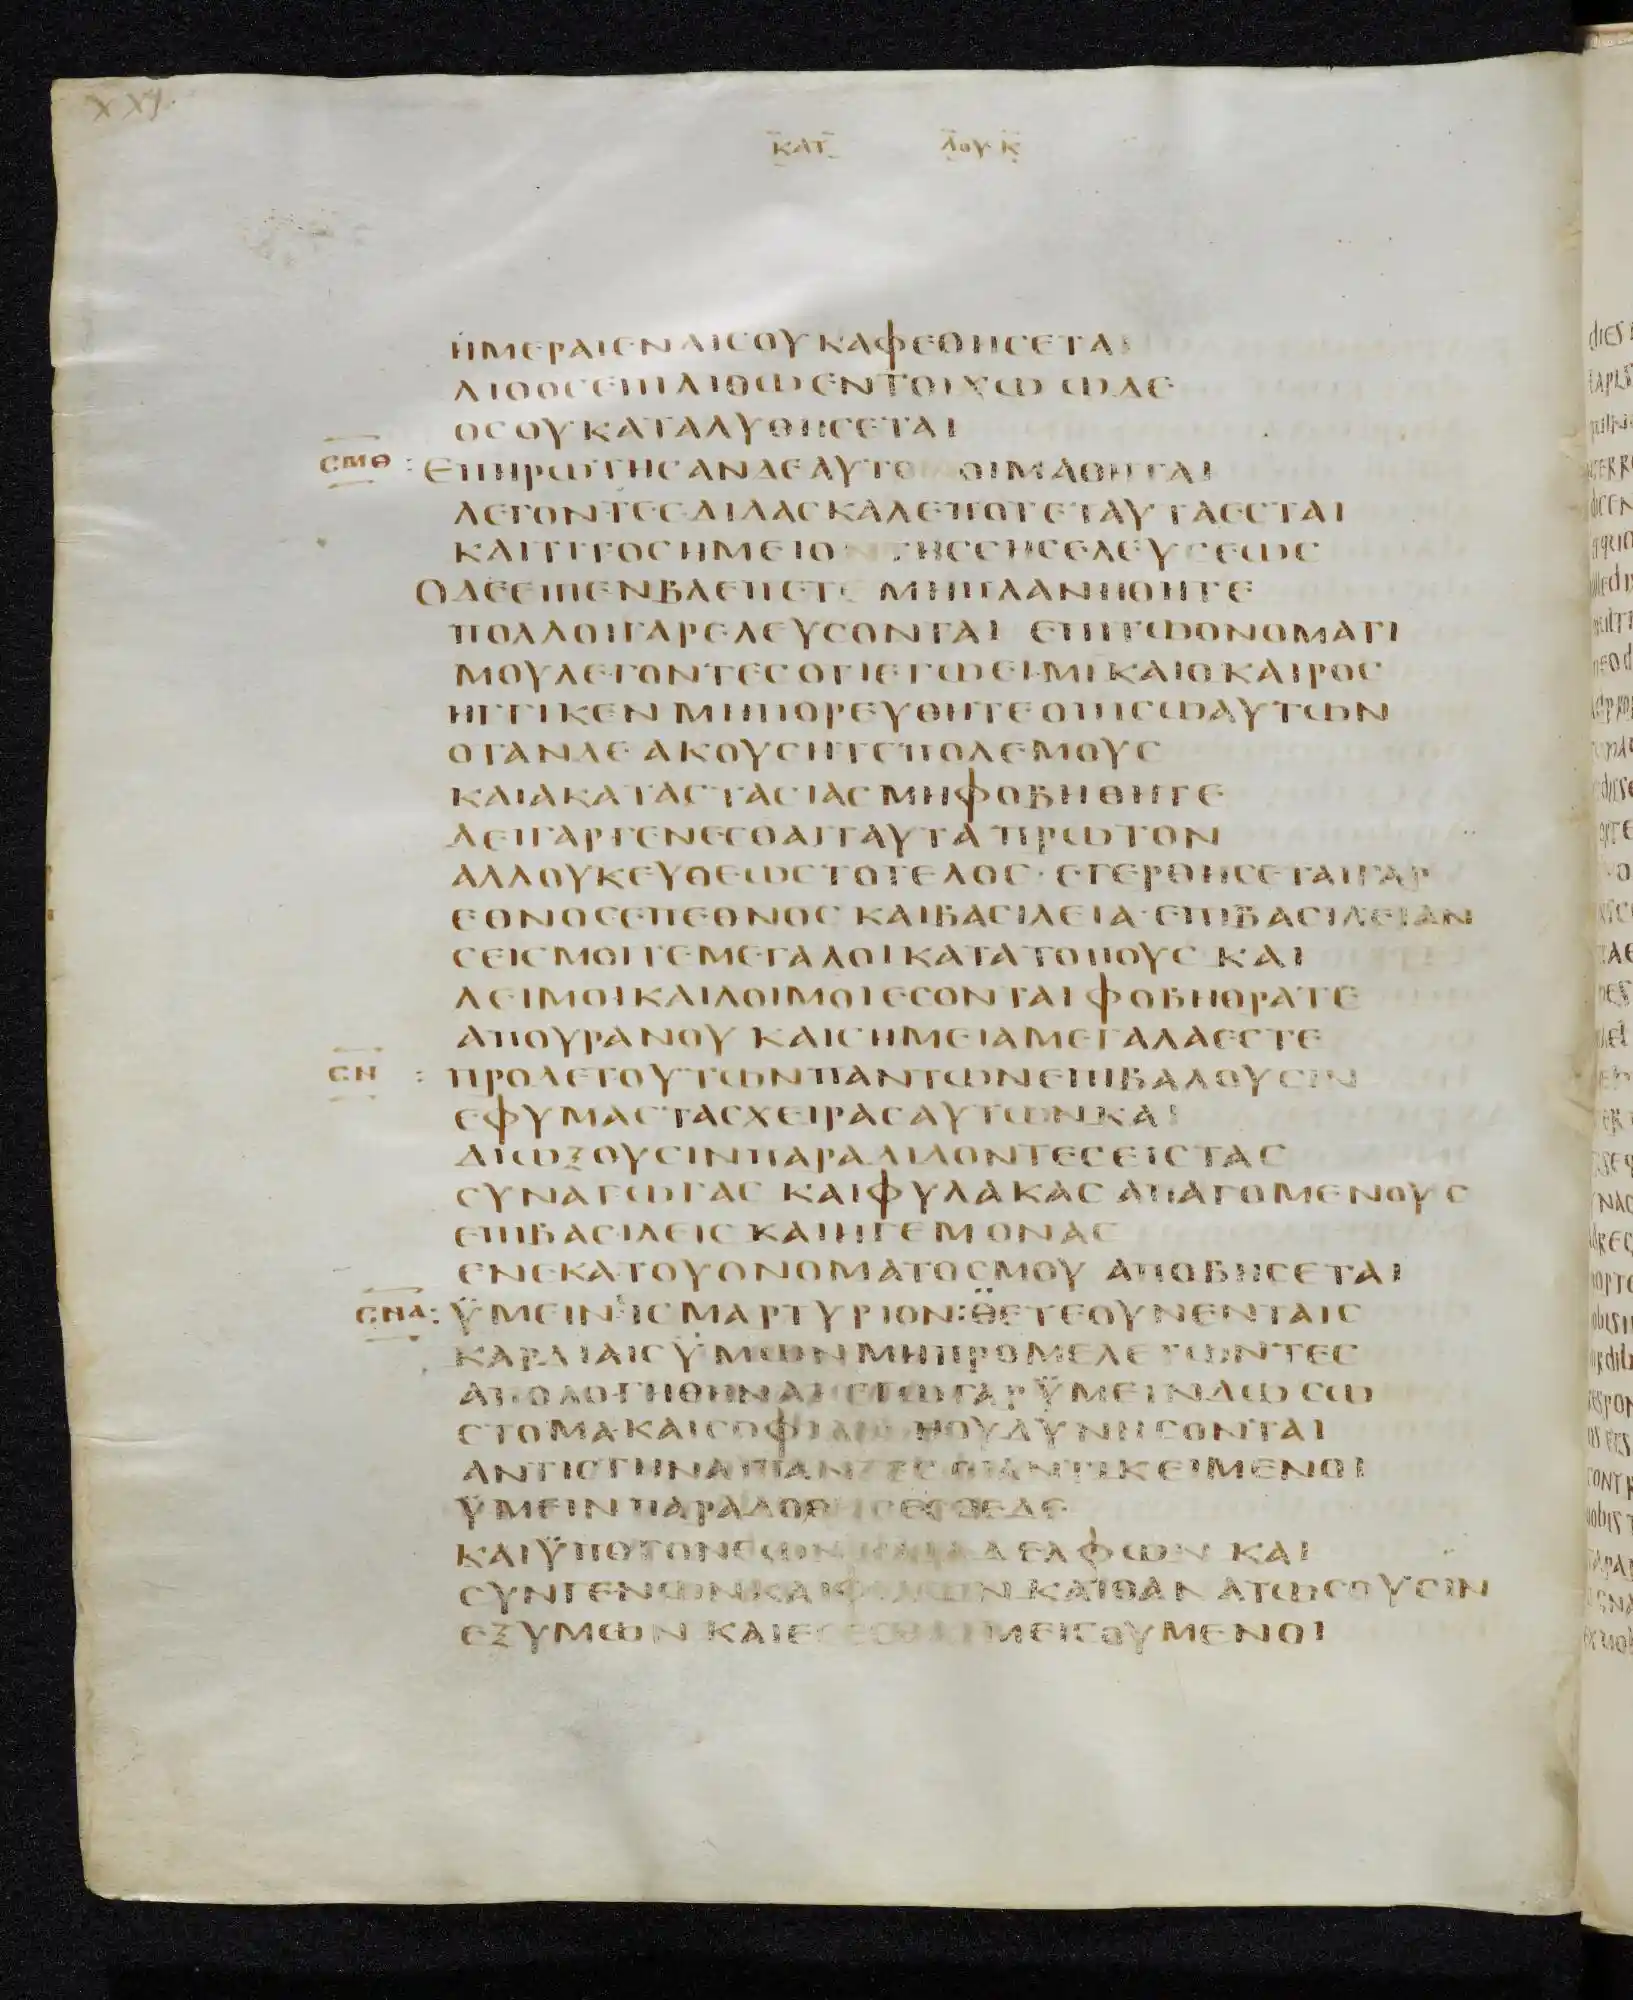 XXI.
ΚΑΤ ΛΟΥΚ
ΗΜΕΡΑΙΕΝΑΙΣΟΥΚΑΦΕΘΗΣΕΤΑΙ
ΛΙΘΟΣΕΠΙΛΙΘΩΕΝΤΟΙΧΩ ΩΔΕ
ΟΣΟΥΚΑΤΑΛΥΘΗΣΕΤΑΙ
ΣΜΘ : ΕΠΗΡΩΤΗΣΑΝΔΕΑΥΤΟΝΟΙΜΑΘΗΤΑΙ
ΛΕΓΟΝΤΕΣΔΙΔΑΣΚΑΛΕΠΟΤΕΤΑΥΤΑΕΣΤΑΙ
ΚΑΙΤΙΤΟΣΗΜΕΙΟΝΤΗΣΣΗΣΕΛΕΥΣΕΩΣ
ΟΔΕΕΙΠΕΝΒΛΕΠΕΤΕ ΜΗΠΛΑΝΗΘΗΤΕ
ΠΟΛΛΟΙΓΑΡΕΛΕΥΣΟΝΤΑΙ ΕΠΙΤΩΟΝΟΜΑΤΙ
ΜΟΥΛΕΓΟΝΤΕΣΟΤΙΕΓΩΕΙΜΙ ΚΑΙΟΚΑΙΡΟΣ
ΗΓΓΙΚΕΝ ΜΗΠΟΡΕΥΘΗΤΕΟΠΙΣΩΑΥΤΩΝ
ΟΤΑΝΔΕ ΑΚΟΥΣΗΤΕΠΟΛΕΜΟΥΣ
ΚΑΙΑΚΑΤΑΣΤΑΣΙΑΣΜΗΦΟΒΗΘΗΤΕ
ΔΕΙΓΑΡΓΕΝΕΣΘΑΙΤΑΥΤΑ ΠΡΩΤΟΝ
ΑΛΛΟΥΚΕΥΘΕΩΣΤΟΤΕΛΟΣ · ΕΓΕΡΘΗΣΕΤΑΙΓΑΡ
ΕΘΝΟΣΕΠΕΘΝΟΣ ΚΑΙΒΑΣΙΛΕΙΑ·ΕΠΙΒΑΣΙΛΕΙΑΝ
ΣΕΙΣΜΟΙΤΕΜΕΓΑΛΟΙΚΑΤΑΤΟΠΟΥΣ ΚΑΙ
ΛΕΙΜΟΙΚΑΙΛΟΙΜΟΙΕΣΟΝΤΑΙΦΟΒΗΘΡΑΤΕ
ΑΠΟΥΡΑΝΟΥ ΚΑΙΣΗΜΕΙΑΜΕΓΑΛΑΕΣΤΕ
ΣΝ : ΠΡΟΔΕΤΟΥΤΩΝΠΑΝΤΩΝΕΠΙΒΑΛΟΥΣΙΝ
ΕΦΥΜΑΣΤΑΣΧΕΙΡΑΣΑΥΤΩΝΚΑΙ
ΔΙΩΞΟΥΣΙΝΠΑΡΑΔΙΔΟΝΤΕΣΕΙΣΤΑΣ
ΣΥΝΑΓΩΓΑΣ ΚΑΙΦΥΛΑΚΑΣ ΑΠΑΓΟΜΕΝΟΥΣ
ΕΠΙΒΑΣΙΛΕΙΣΚΑΙΗΓΕΜΟΝΑΣ
ΕΝΕΚΑΤΟΥΟΝΟΜΑΤΟΣΜΟΥ ΑΠΟΒΗΣΕΤΑΙ
ΣΝΑ : ΫΜΕΙΝΕΙΣΜΑΡΤΥΡΙΟΝ:ΘΕΤΕΟΥΝΕΝΤΑΙΣ
ΚΑΡΔΙΑΙΣΫΜΩΝΜΗΠΡΟΜΕΛΕΤΩΝΤΕΣ
ΑΠΟΛΟΓΗΘΗΝΑΙΕΓΩΓΑΡΫΜΕΙΝΔΩΣΩ
ΣΤΟΜΑ·ΚΑΙΣΟΦΙΑΝ ΗΟΥΔΥΝΗΣΟΝΤΑΙ
ΑΝΤΙΣΤΗΝΑΙΠΑΝΤΕΣΟΙΑΝΤΙΚΕΙΜΕΝΟΙ
ΫΜΕΙΝΠΑΡΑΔΟΘΗΣΕΣΘΕΔΕ
ΚΑΙΫΠΟΓΟΝΕΩΝΚΑΙΑΔΕΛΦΩΝ ΚΑΙ
ΣΥΝΓΕΝΩΝΚΑΙΦΙΛΩΝΚΑΙΘΑΝΑΤΩΣΟΥΣΙΝ
ΕΞΥΜΩΝ ΚΑΙΕΣΕΣΘΑΙΜΕΙΣΟΥΜΕΝΟΙ